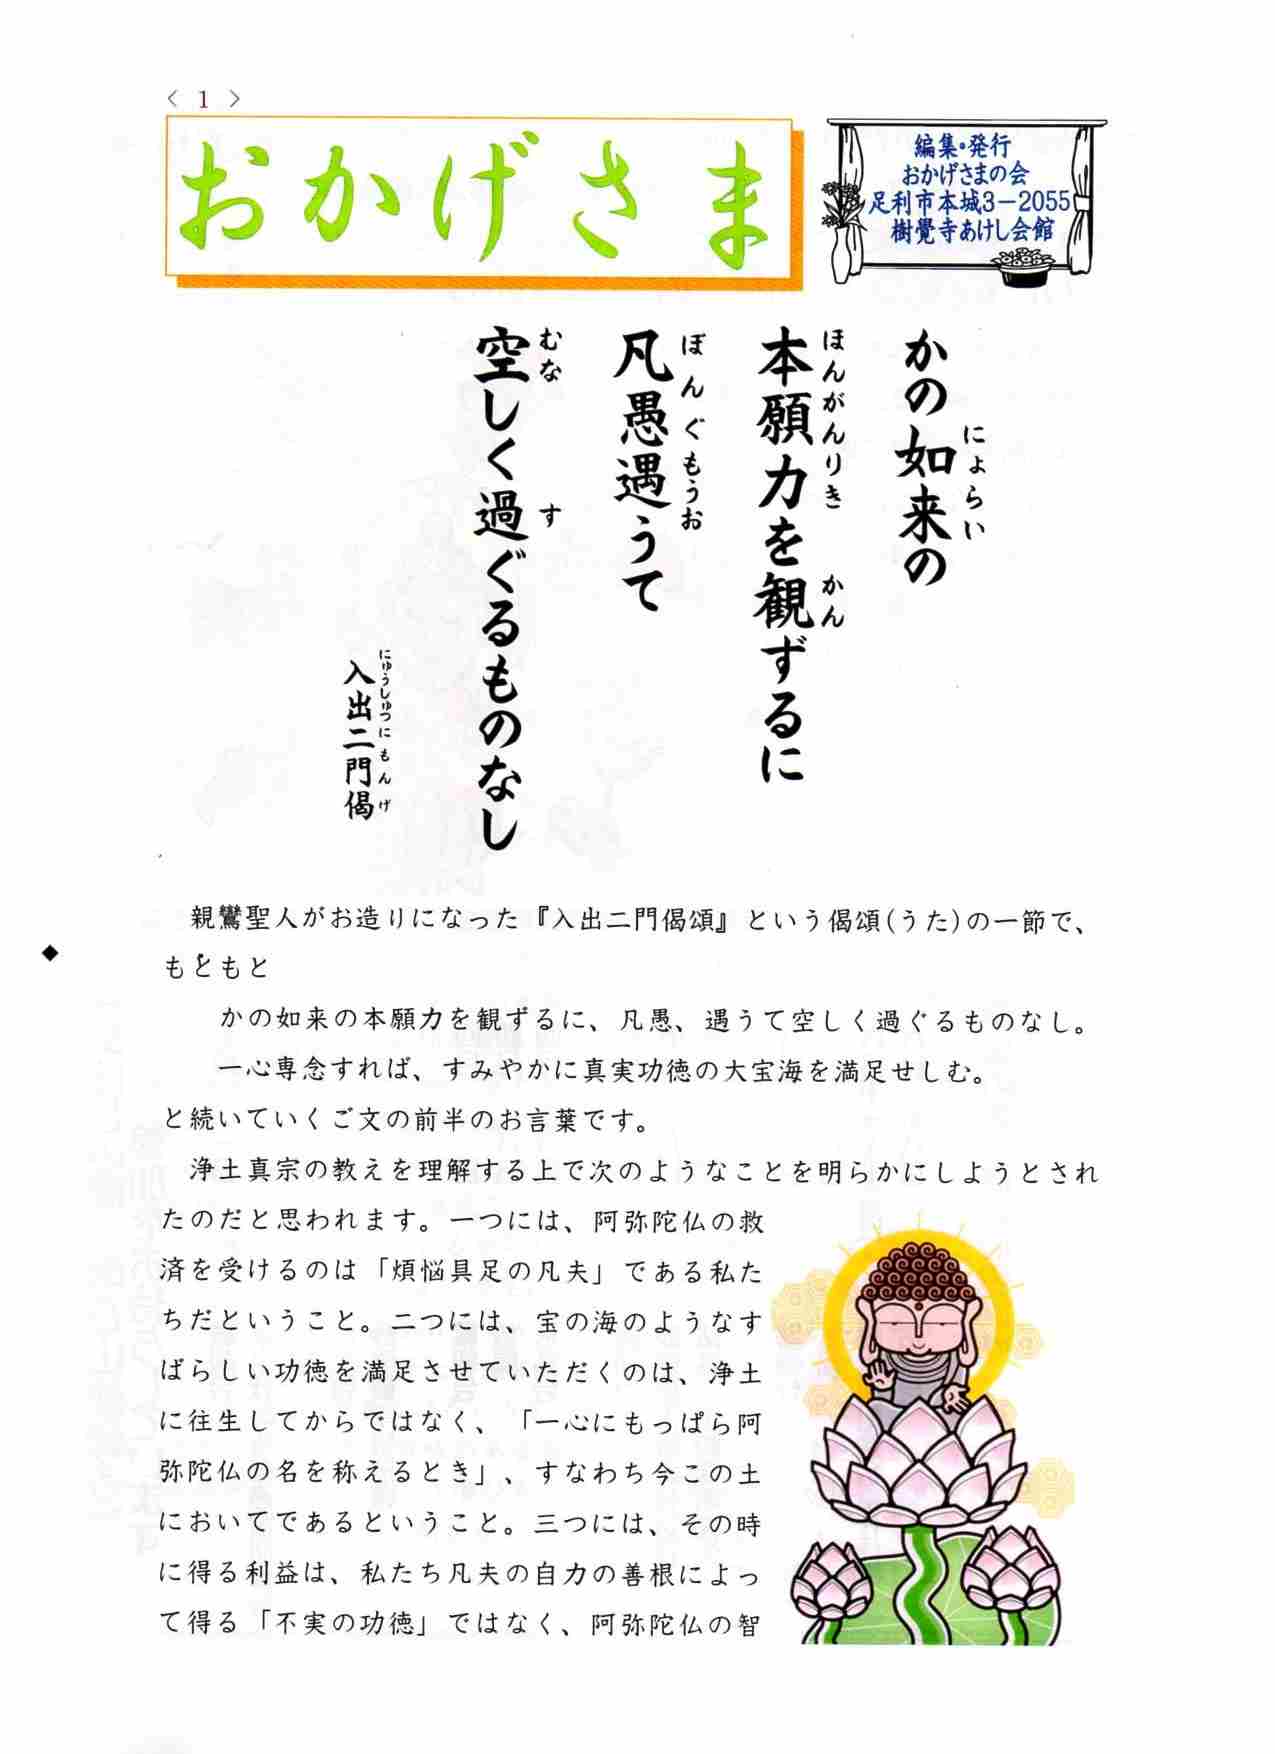 〈 1 〉
おかげさま
編集・発行
おかげさまの会
足利市本城3－2055
樹覺寺あけし会館
かの如来の
にょらい
本願力を観ずるに
ほんがんりき かん
凡愚遇うて
ぼんぐもうお
空しく過ぐるものなし
むな す
入出二門偈
にゅうしゅつにもんげ
親鸞聖人がお造りになった『入出二門偈頌』という偈頌(うた)の一節で、
もともと
かの如来の本願力を観ずるに、凡愚、遇うて空しく過ぐるものなし。
一心専念すれば、すみやかに真実功徳の大宝海を満足せしむ。
と続いていくご文の前半のお言葉です。
浄土真宗の教えを理解する上で次のようなことを明らかにしようとされ
たのだと思われます。一つには、阿弥陀仏の救
済を受けるのは「煩悩具足の凡夫」である私た
ちだということ。二つには、宝の海のようなす
ばらしい功徳を満足させていただくのは、浄土
に往生してからではなく、「一心にもっぱら阿
弥陀仏の名を称えるとき」、すなわち今この土
においてであるということ。三つには、その時
に得る利益は、私たち凡夫の自力の善根によっ
て得る「不実の功徳」ではなく、阿弥陀仏の智